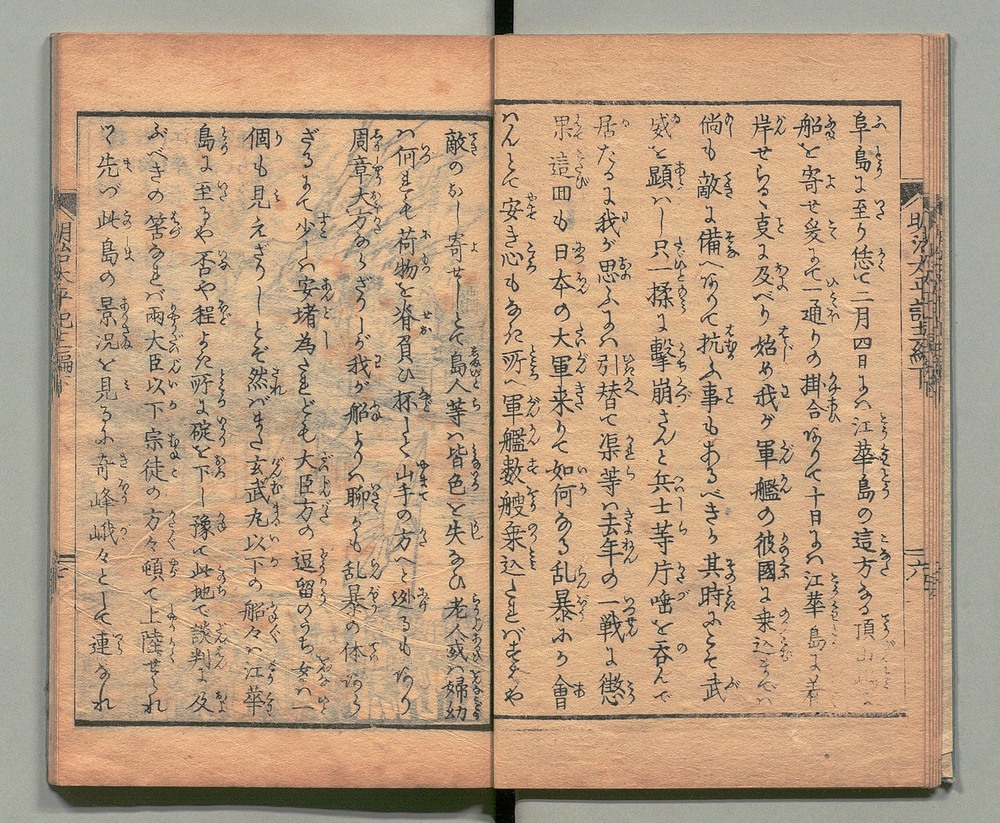 阜島に至り恁て二月四日には江華島の這方なる頂山
船を寄せ爰にて一通りの掛合ありて十日には江華島に着
岸せらるゝ㕝に及べり始め我が軍艦の彼國に乗込までは
倘も敵に備へありて抗ふ事もあるべきか其時にこそ武
威を顕はし只一揉に擊崩さんと兵士等片唾を呑んで
居たるに我が思ふには引替て渠等は去年の一戦に懲
果這囬も日本の大軍来りて如何なる乱暴にか會
はんとて安き心もなた所へ軍艦数艘乗込たればすはや
敵のおし寄せしとて島人等は皆色を失なひ老人或は婦幼
は何れも荷物を脊負ひ抔して山手の方へと迯るもあり
周章大方ならざりしが我が船よりは聊かも乱暴の体あら
ざるにて少しは安堵為たれども大臣方の逗留のうち女は一
個も見えざりしとぞ然ばまた玄武丸以下の船々は江華
島に至るや否や程よた所に碇を下し豫て此地で談判に及
ぶべきの筈なれば兩大臣以下宗徒の方々頓て上陸せられ
つゝ先づ此島の景况を見るに奇峰峨々として連なれ
明治太平記十三編下
六